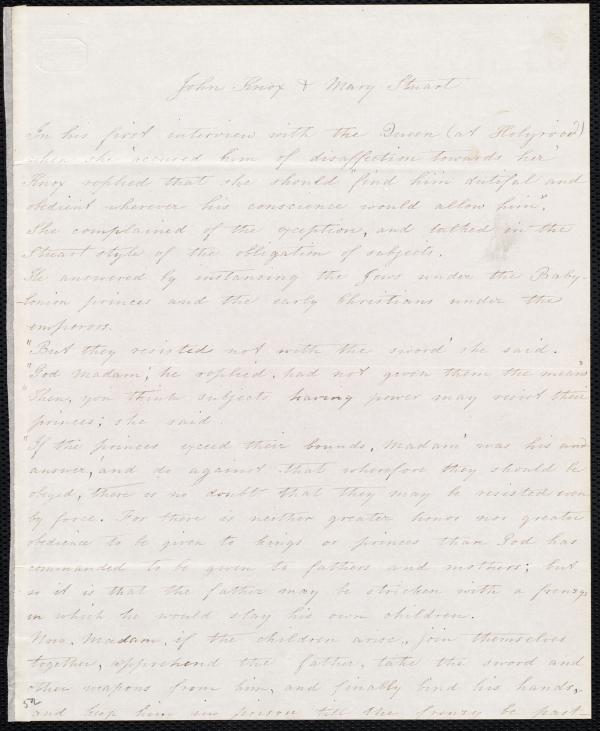 John Knox & Mary Stuart
In his first interview with the Queen (at Holyrood)
when she 'accused him of disaffection towards her'
Knox replied that she should "find him dutiful and
obedient wherever his conscience would allow him".
She complained of the exception, and talked in the
Stuart style of the obligation of subjects.
He answered by instancing the Jews under the Baby-
-lonian princes and the early Christians under the
emperors.
"But they resisted not with the sword' she said.
"God madam', he replied, had not given them the means"
"Then, you think subjects having power may resist their
princes; she said.
"If the princes exceed their bounds, Madam' was his
answer, and do against that wherefore they should be
obeyed, there is no doubt that they may be resisted even
by force. For there is neither greater honor nor greater
obedience to be given to kings or princes than God has
commanded to be given to fathers and mothers; but
so it is that the father may be stricken with a frenzy
in which he would slay his own children.
Now, Madam, if the children arise, join themselves
together, apprehend the father, take the sword and
other weapons from him, and finally bind his hands,
and keep him in prison till the frenzy be past-
52